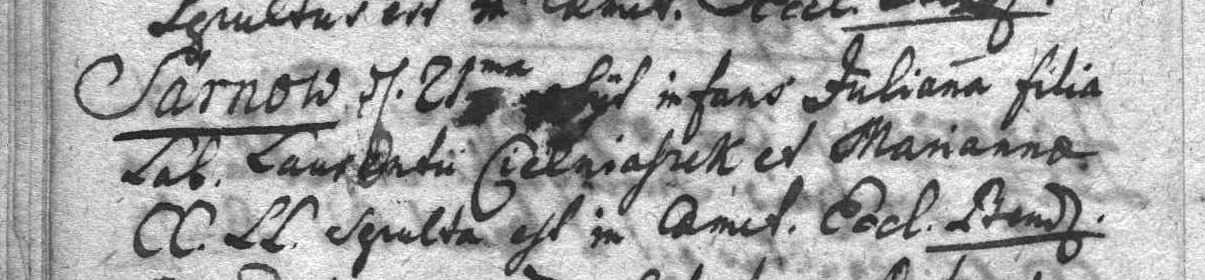 Sepultus est in Cæmet. Eccl. Bendz.
Sarnow d. 21ma obijt infans Julianna filia
Lab. Laurentii Cielniaszek et Marianna
CC. LL. Sepulta est in Cæmet. Eccl. Bendz.